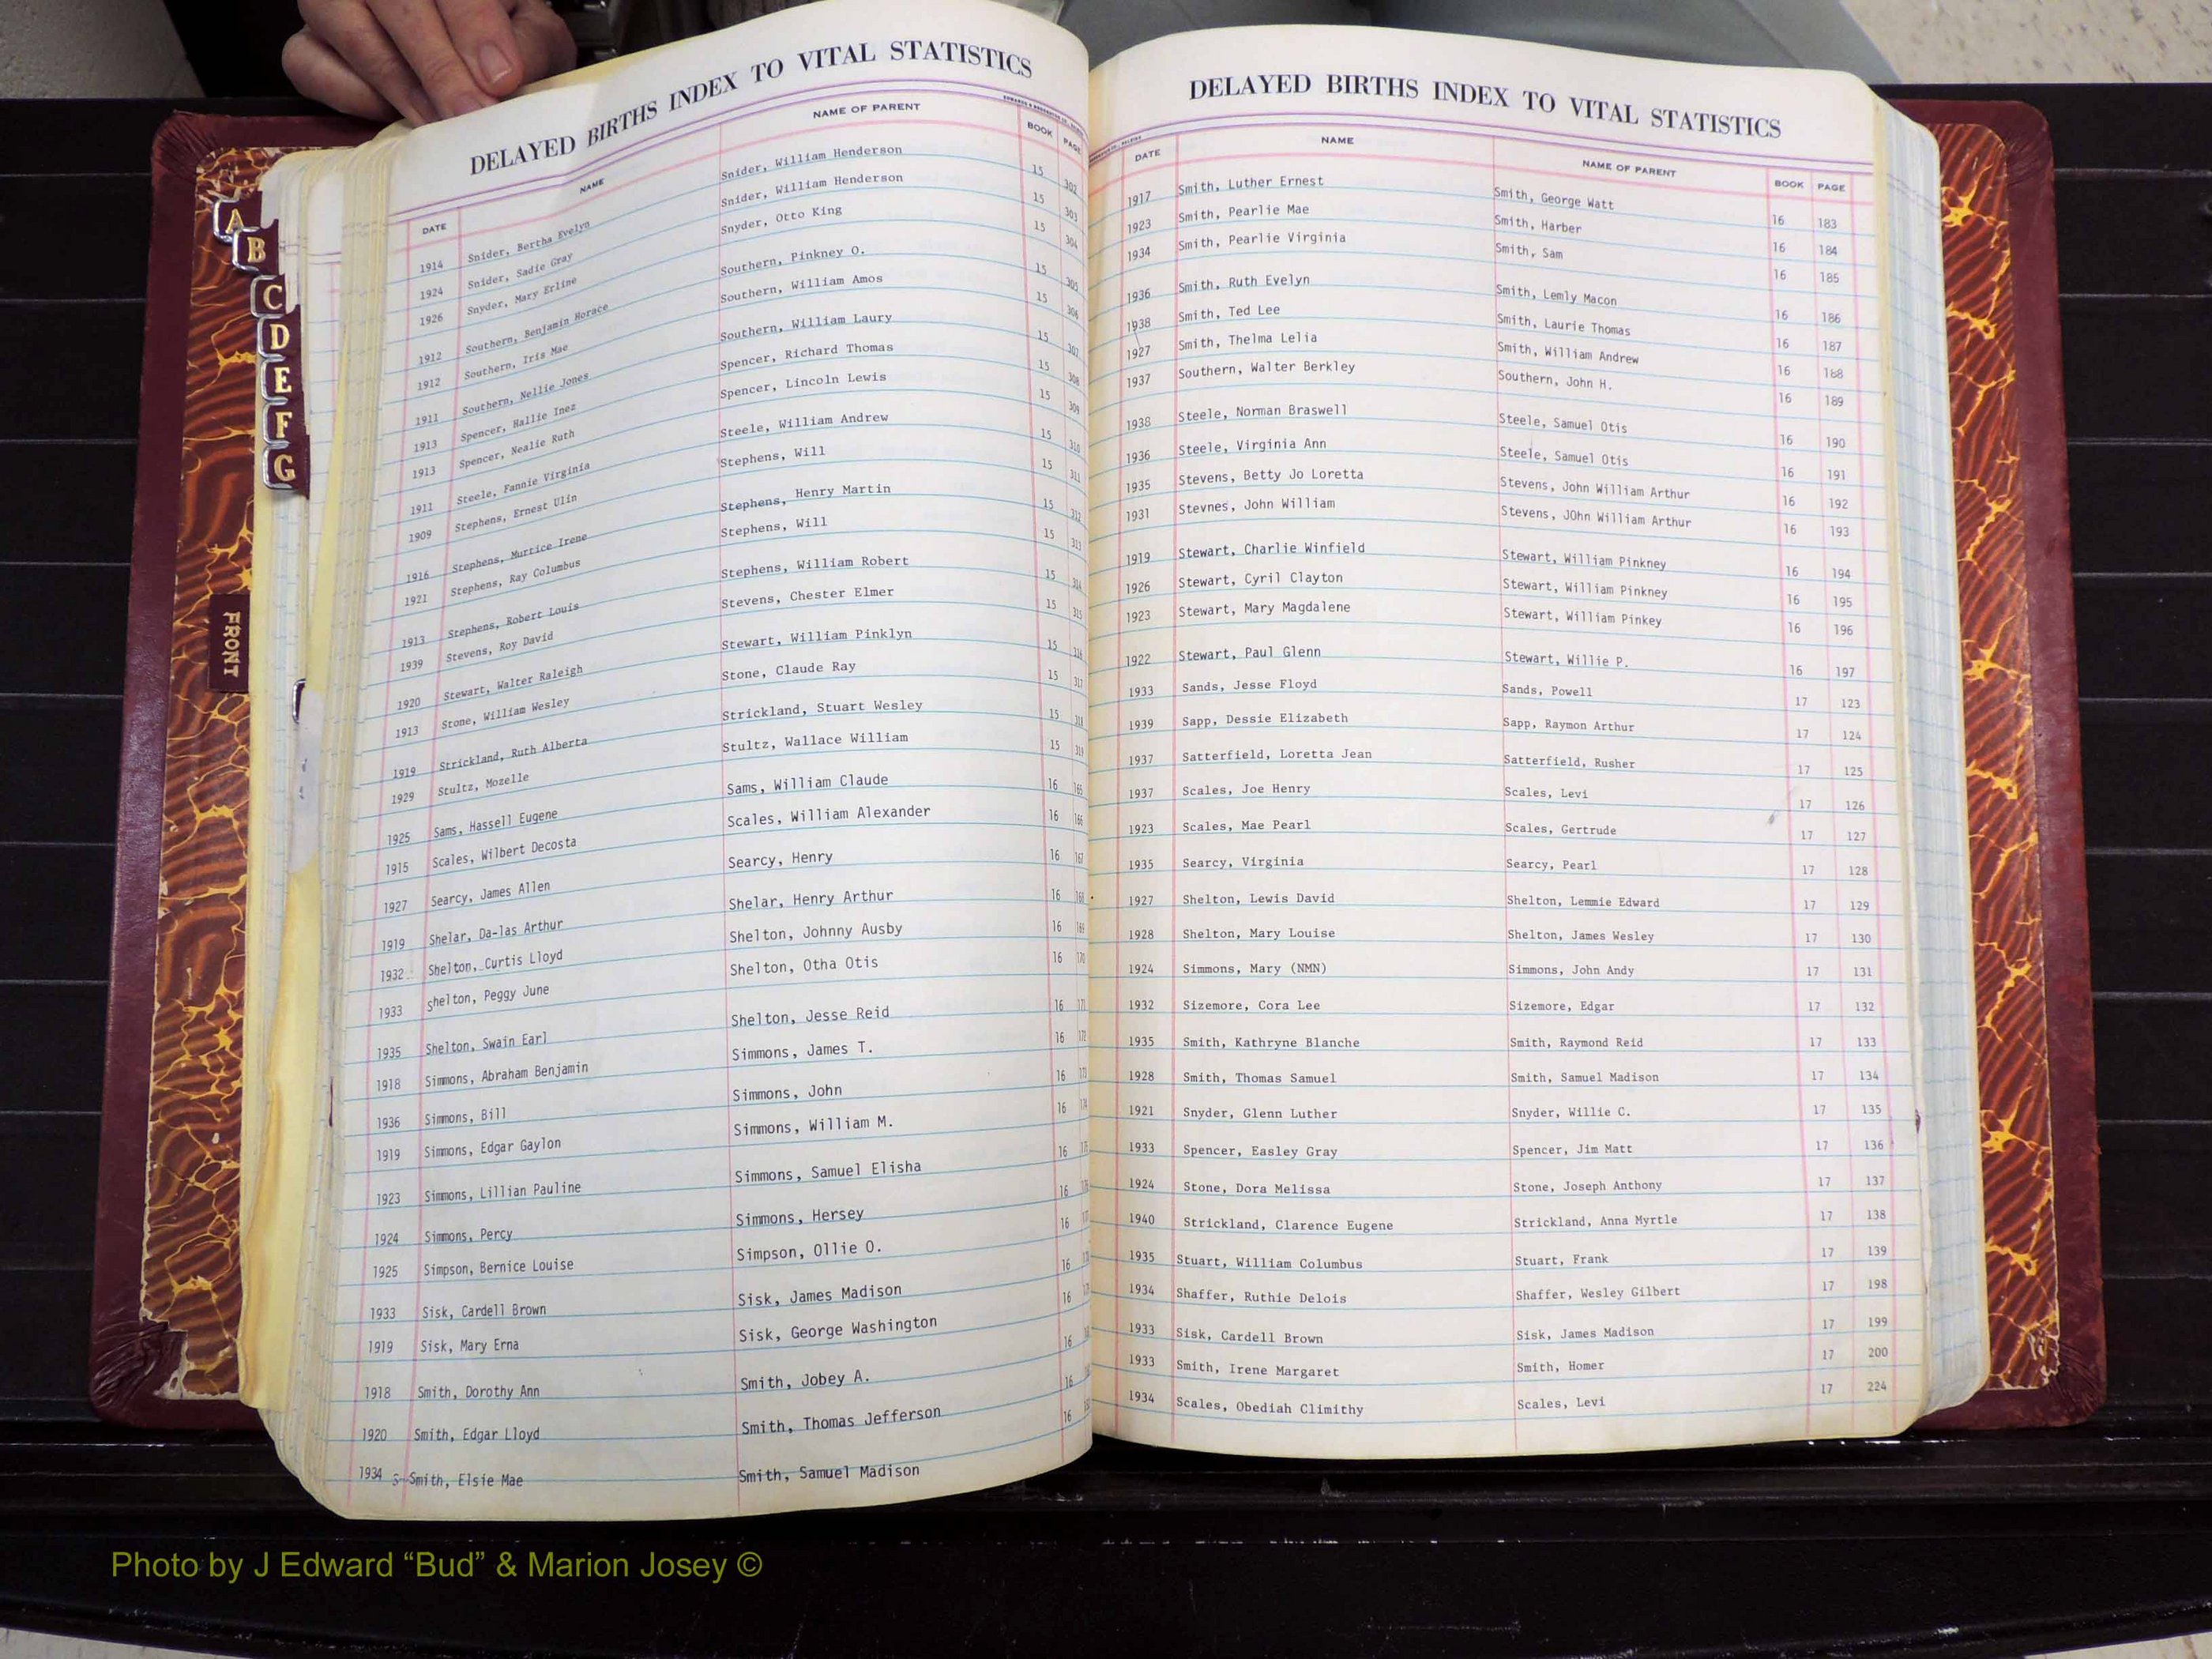 A
B
C
D
E
F
G
FRONT
DELAYED BIRTHS INDEX TO VITAL STATISTICS
DATE NAME NAME OF PARENT BOOK PAGE
1914 Snider, Bertha Evelyn Snider, William Henderson 15 302
1924 Snider, Sadie Gray Snider, William Henderson 15 303
1926 Snyder, Mary Erline Snyder, Otto King 15 304
1912 Southern, Benjamin Horace Southern, Pinkney O. 15 305
1912 Southern, Iris Mae Southern, William Amos 15 306
1911 Southern, Nellie Jones Southern, William Laury 15 307
1913 Spencer, Hallie Inez Spencer, Richard Thomas 15 308
1913 Spencer, Nealie Ruth Spencer, Lincoln Lewis 15 309
1911 Steele, Fannie Virginia Steele, William Andrew 15 310
1909 Stephens, Ernest Ulin Stephens, Will 15 311
1916 Stephens, Murtice Irene Stephens, Henry Martin 15 312
1921 Stephens, Ray Columbus Stephens, Will 15 313
1913 Stephens, Robert Louis Stephens, William Robert 15 314
1939 Stevens, Roy David Stevens, Chester Elmer 15 315
1920 Stewart, Walter Raleigh Stewart, William Pinklyn 15 316
1913 Stone, William Wesley Stone, Claude Ray 15 317
1919 Strickland, Ruth Alberta Strickland, Stuart Wesley 15 318
1929 Stultz, Mozelle Stultz, Wallace William 15 319
1925 Sams, Hassell Eugene Sams, William Claude 16 165
1915 Scales, Wilbert Decosta Scales, William Alexander 16 166
1927 Searcy, James Allen Searcy, Henry 16 167
1919 Shelar, Da-las Arthur Shelar, Henry Arthur 16 168
1932 Shelton, Curtis Lloyd Shelton, Johnny Ausby 16 169
1933 Shelton, Peggy June Shelton, Otha Otis 16 170
1935 Shelton, Swain Earl Shelton, Jesse Reid 16 171
1918 Simmons, Abraham Benjamin Simmons, James T. 16 172
1936 Simmons, Bill Simmons, John 16
1919 Simmons, Edgar Gaylon Simmons, William M. 16
1923 Simmons, Lillian Pauline Simmons, Samuel Elisha 16
1924 Simmons, Percy Simmons, Hersey 16
1925 Simpson, Bernice Louise Simpson, Ollie O. 16
1933 Sisk, Cardell Brown Sisk, James Madison 16
1919 Sisk, Mary Erna Sisk, George Washington 16
1918 Smith, Dorothy Ann Smith, Jobey A. 16
1920 Smith, Edgar Lloyd Smith, Thomas Jefferson 16
1934 Smith, Elsie Mae Smith, Samuel Madison 16
DELAYED BIRTHS INDEX TO VITAL STATISTICS
DATE NAME NAME OF PARENT BOOK PAGE
1917 Smith, Luther Ernest Smith, George Watt 16 183
1923 Smith, Pearlie Mae Smith, Harber 16 184
1934 Smith, Pearlie Virginia Smith, Sam 16 185
1936 Smith, Ruth Evelyn Smith, Lemly Macon 16 186
1938 Smith, Ted Lee Smith, Laurie Thomas 16 187
1927 Smith, Thelma Lelia Smith, William Andrew 16 188
1937 Southern, Walter Berkley Southern, John H. 16 189
1938 Steele, Norman Braswell Steele, Samuel Otis 16 190
1936 Steele, Virginia Ann Steele, Samuel Otis 16 191
1935 Stevens, Betty Jo Loretta Stevens, John William Arthur 16 192
1931 Stevnes, John William Stevens, JOhn William Arthur 16 193
1919 Stewart, Charlie Winfield Stewart, William Pinkney 16 194
1926 Stewart, Cyril Clayton Stewart, William Pinkney 16 195
1923 Stewart, Mary Magdalene Stewart, William Pinkey 16 196
1922 Stewart, Paul Glenn Stewart, Willie P. 16 197
1933 Sands, Jesse Floyd Sands, Powell 17 123
1939 Sapp, Dessie Elizabeth Sapp, Raymon Arthur 17 124
1937 Satterfield, Loretta Jean Satterfield, Rusher 17 125
1937 Scales, Joe Henry Scales, Levi 17 126
1923 Scales, Mae Pearl Scales, Gertrude 17 127
1935 Searcy, Virginia Searcy, Pearl 17 128
1927 Shelton, Lewis David Shelton, Lemmie Edward 17 129
1928 Shelton, Mary Louise Shelton, James Wesley 17 130
1924 Simmons, Mary (NMN) Simmons, John Andy 17 131
1932 Sizemore, Cora Lee Sizemore, Edgar 17 132
1935 Smith, Kathryne Blanche Smith, Raymond Reid 17 133
1928 Smith, Thomas Samuel Smith, Samuel Madison 17 134
1921 Snyder, Glenn Luther Snyder, Willie C. 17 135
1933 Spencer, Easley Gray Spencer, Jim Matt 17 136
1924 Stone, Dora Melissa Stone, Joseph Anthony 17 137
1940 Strickland, Clarence Eugene Strickland, Anna Myrtle 17 138
1935 Stuart, William Columbus Stuart, Frank 17 139
1934 Shaffer, Ruthie Delois Shaffer, Wesley Gilbert 17 198
1933 Sisk, Cardell Brown Sisk, James Madison 17 199
1933 Smith, Irene Margaret Smith, Homer 17 200
1934 Scales, Obediah Climithy Scales, Levi 17 224
Photo by J Edward “Bud” & Marion Josey ©